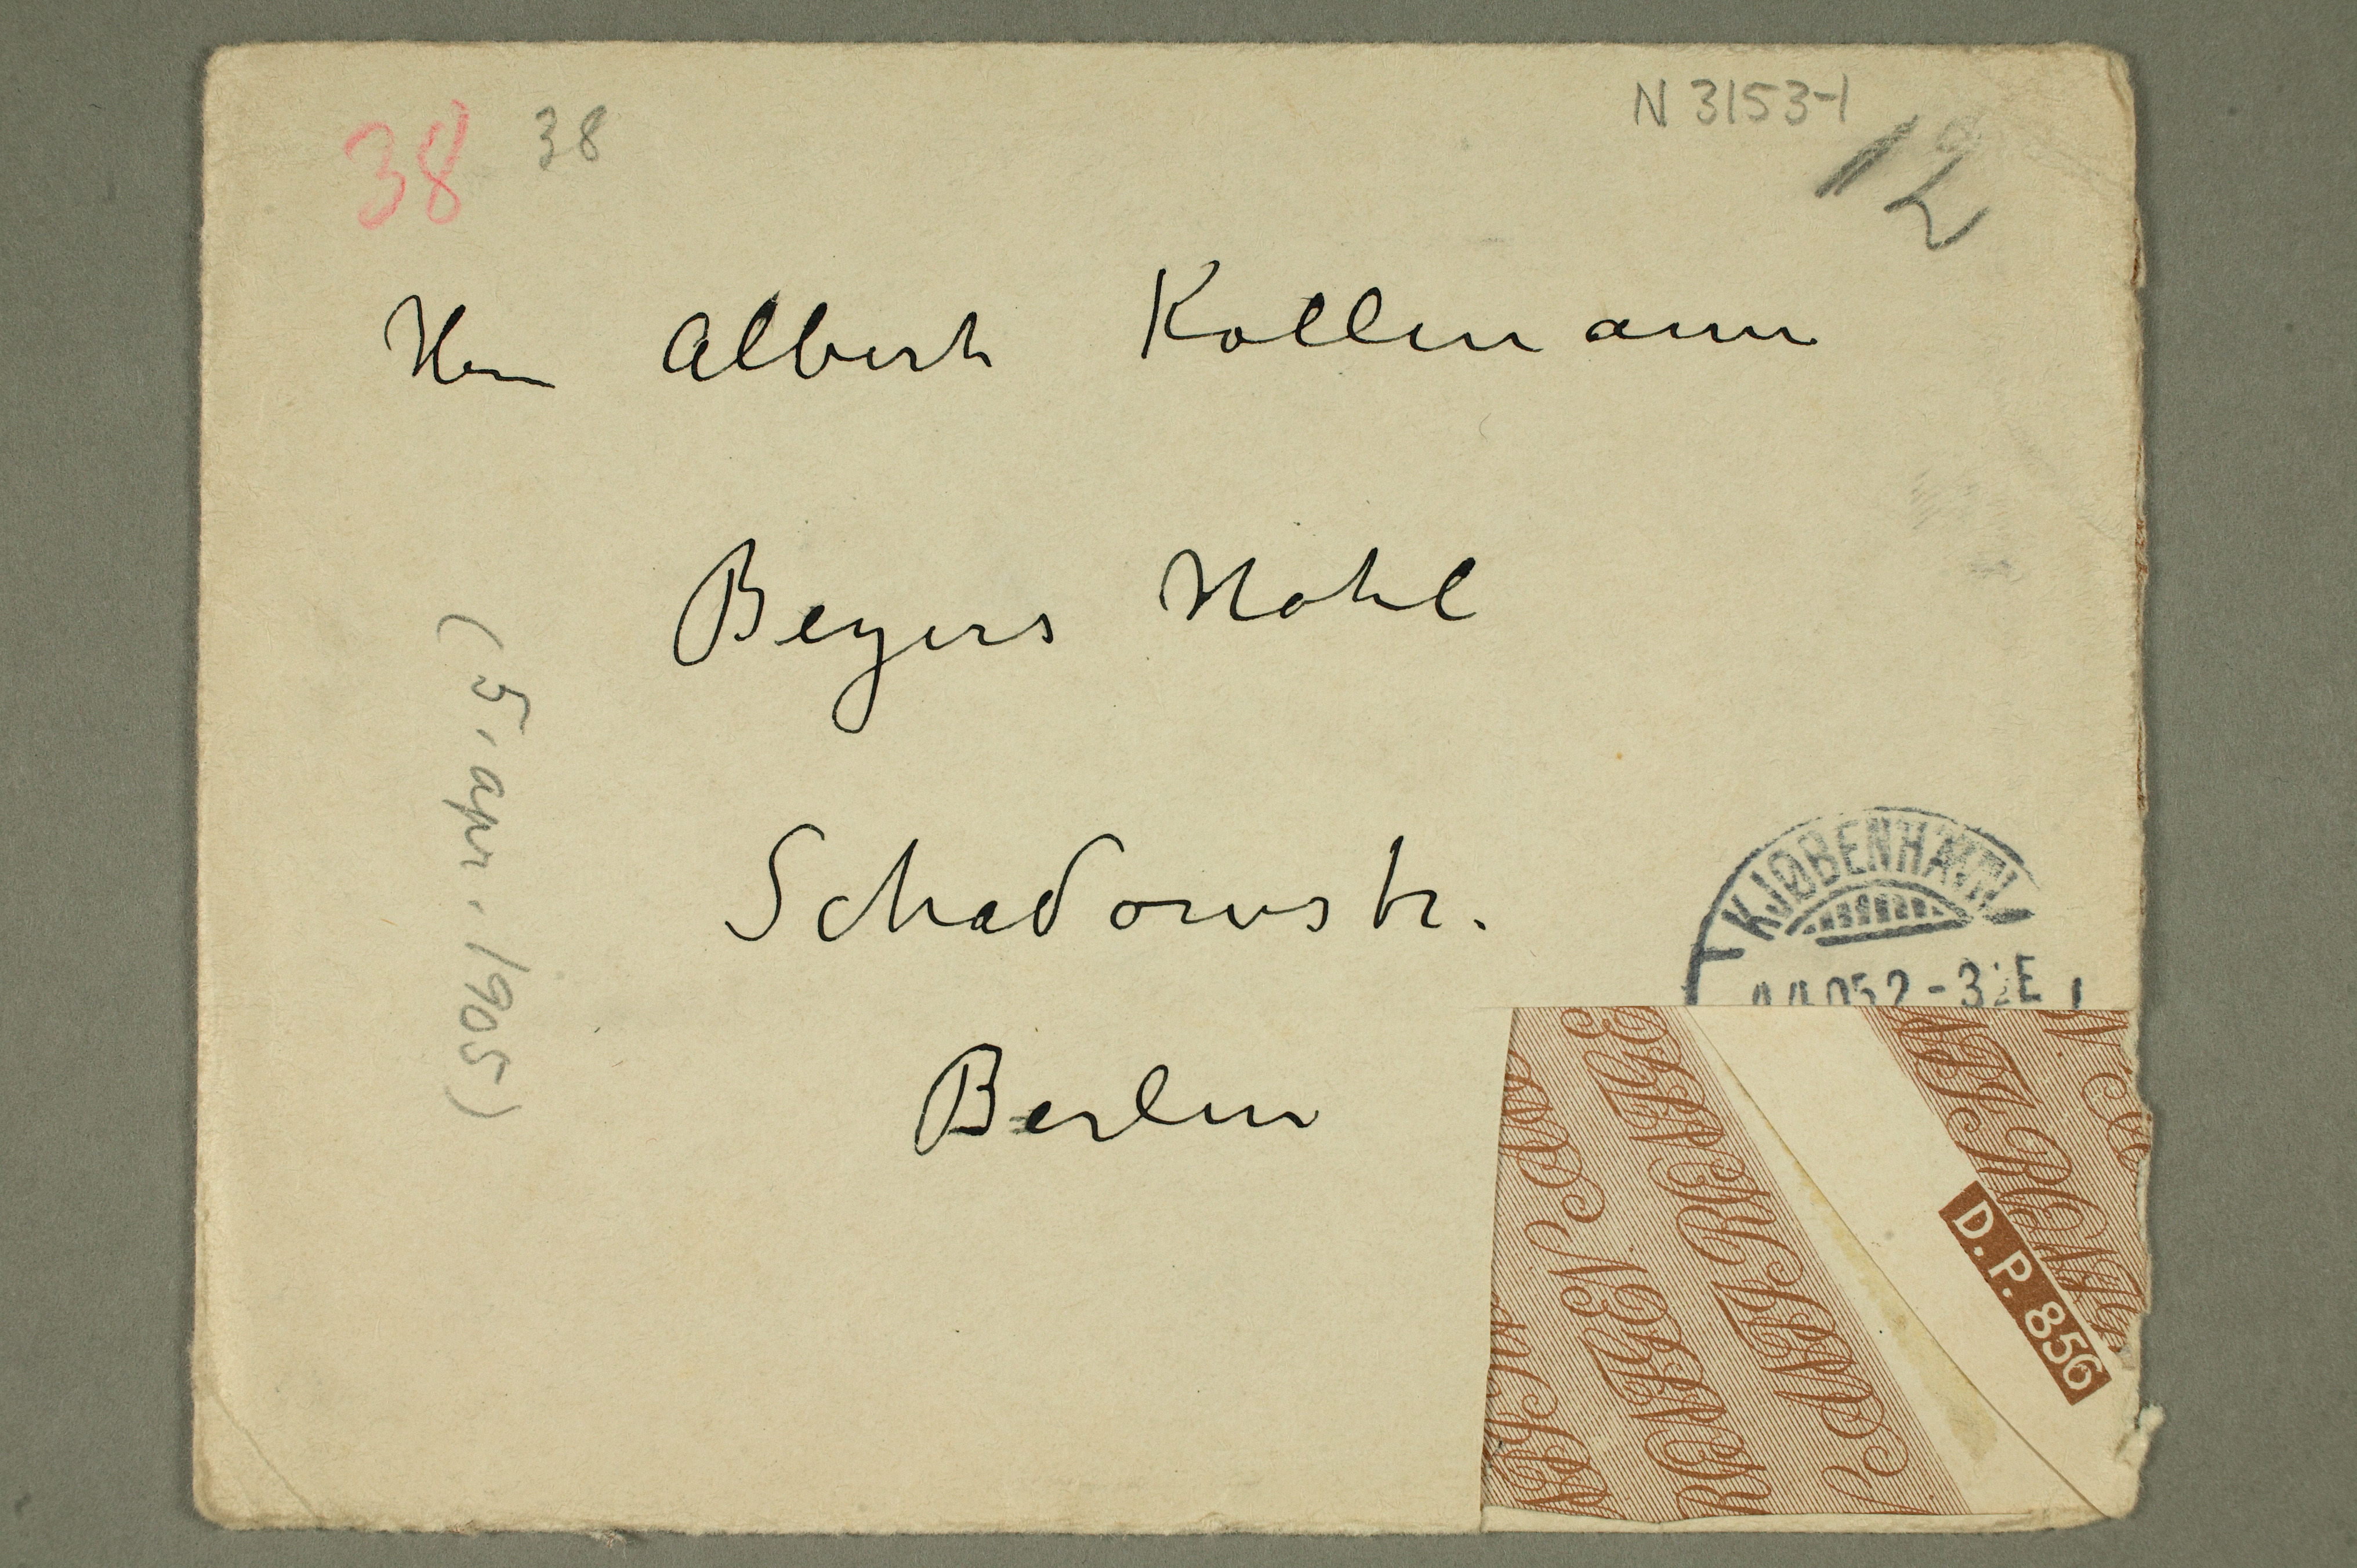 38 38
N 3153-1
12
Herrn Albert Kollmann
Beyers Hotel
Schadowstr.
Berlin
(5. apr. 1905)
KJØBENHAVN
2-3 E
D. P. 856